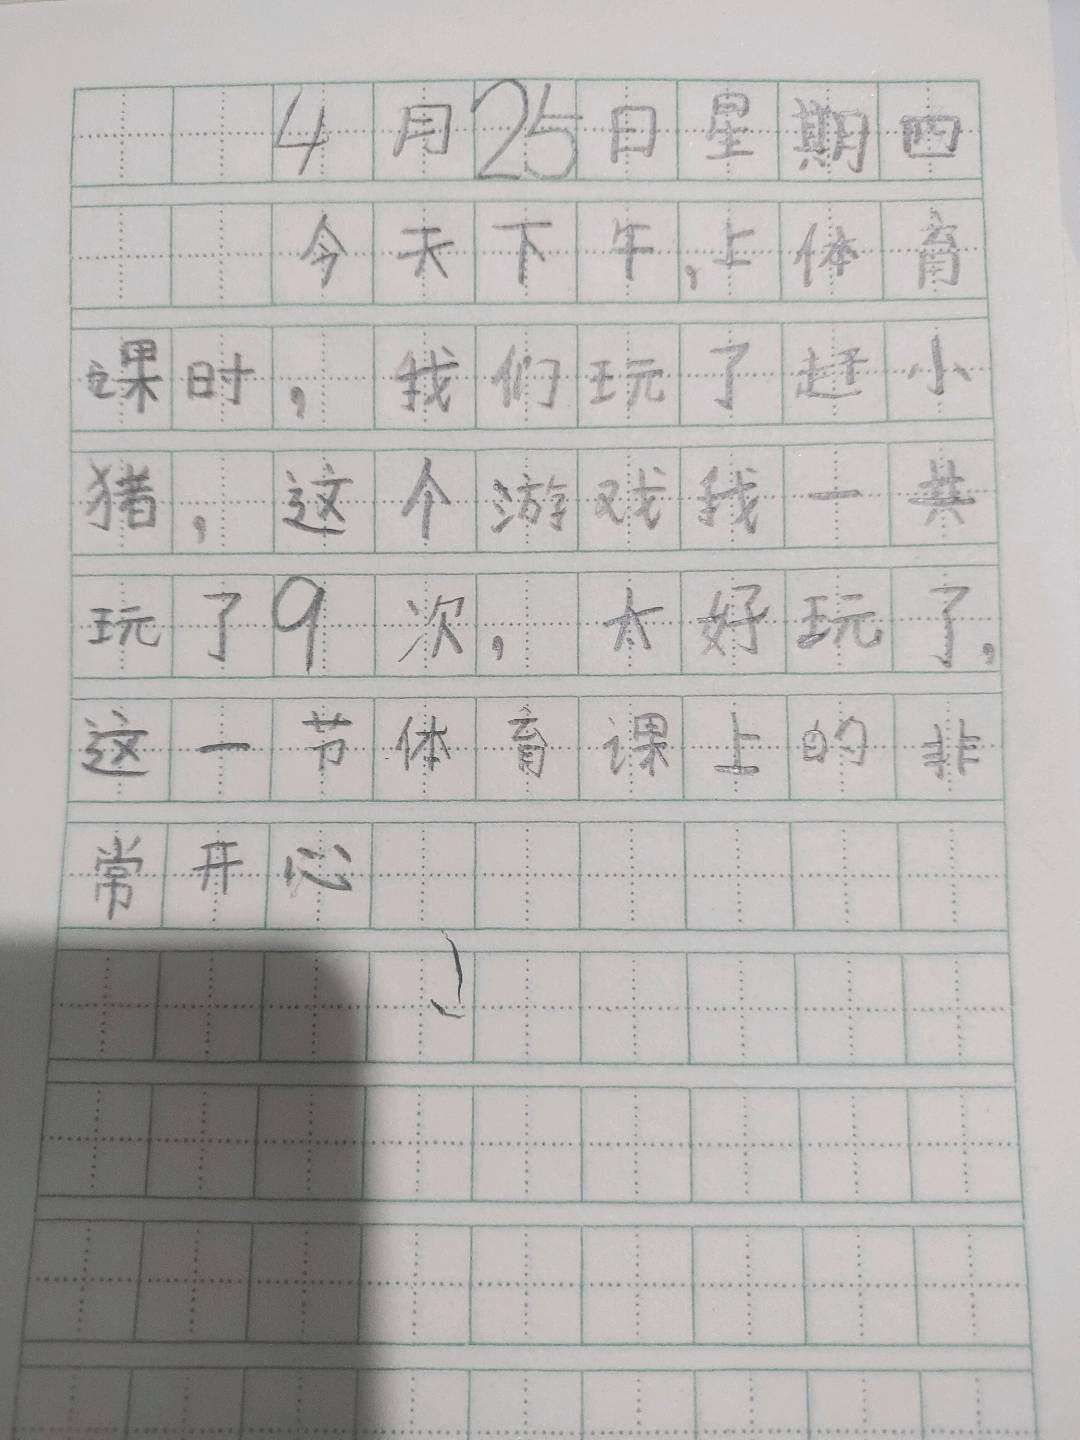 4月25日星期四
今天下午,上体育
课时,我们玩了赶小
猪,这个游戏我一共
玩了9次,太好玩了,
这一节体育课上的非
常开心